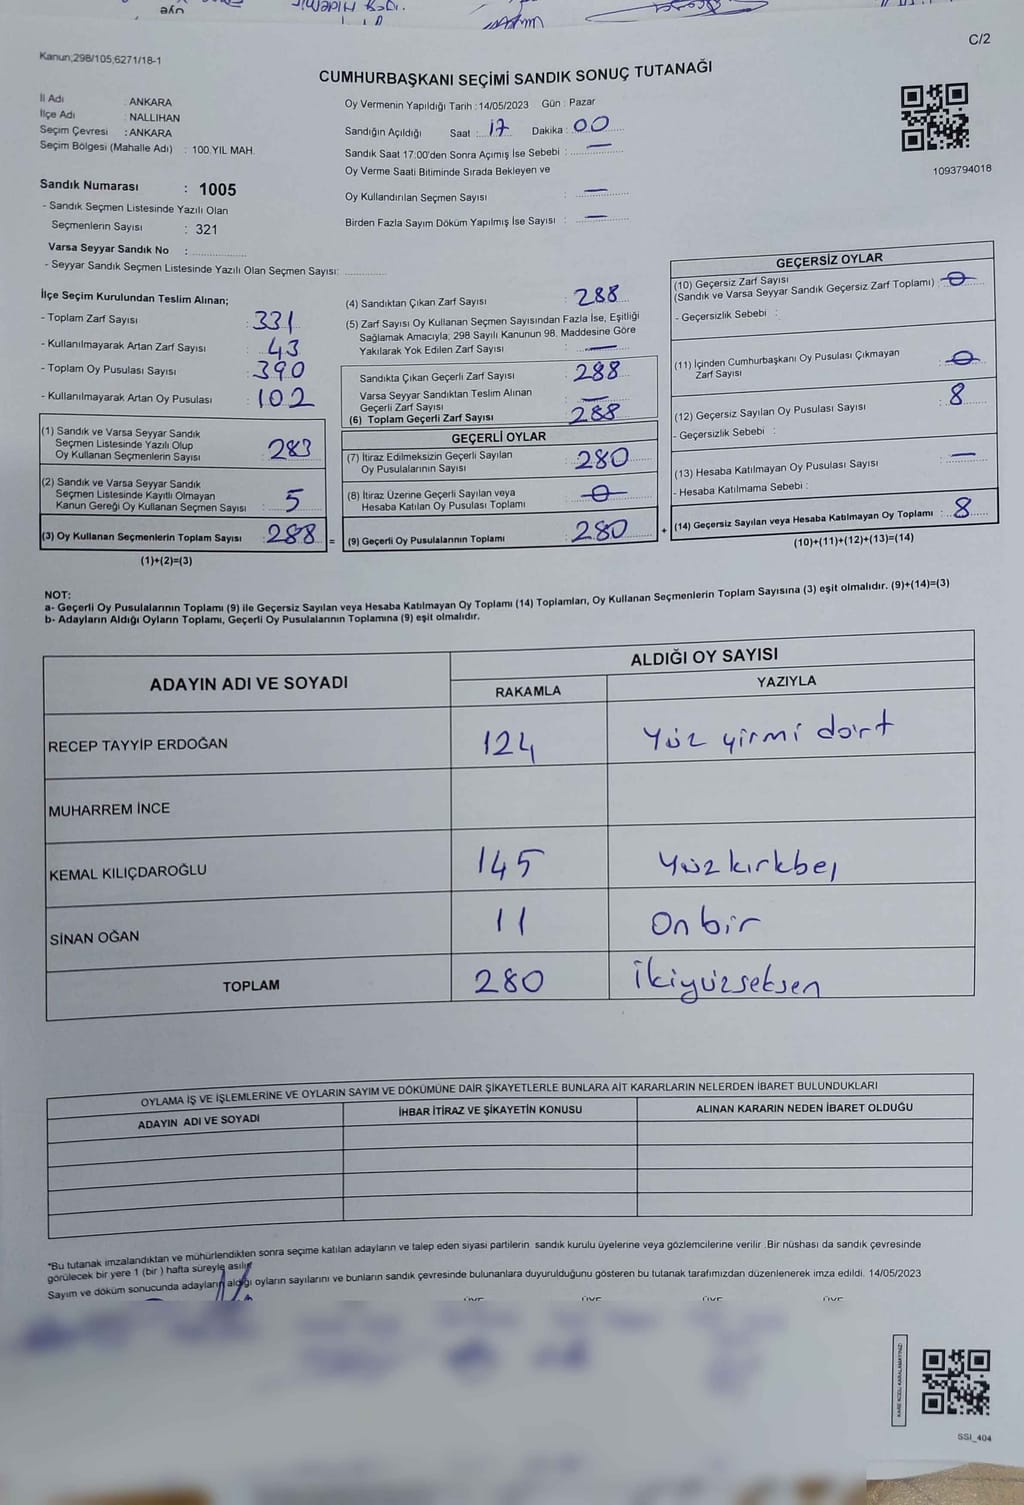 Kanun;298/105,6271/18-1
C/2
CUMHURBAŞKANI SEÇİMİ SANDIK SONUÇ TUTANAĞI
İl Adı : ANKARA
İlçe Adı : NALLIHAN
Seçim Çevresi : ANKARA
Seçim Bölgesi (Mahalle Adı) : 100.YIL MAH.
Sandık Numarası : 1005
- Sandık Seçmen Listesinde Yazılı Olan
Seçmenlerin Sayısı : 321
Varsa Seyyar Sandık No :
- Seyyar Sandık Seçmen Listesinde Yazılı Olan Seçmen Sayısı:
Oy Vermenin Yapıldığı Tarih : 14/05/2023 Gün : Pazar
Sandığın Açıldığı Saat : 17 Dakika : 00
Sandık Saat 17:00'den Sonra Açımış İse Sebebi : —
Oy Verme Saati Bitiminde Sırada Bekleyen ve
Oy Kullandırılan Seçmen Sayısı : —
Birden Fazla Sayım Döküm Yapılmış İse Sayısı : —
1093794018
İlçe Seçim Kurulundan Teslim Alınan;
- Toplam Zarf Sayısı : 331
- Kullanılmayarak Artan Zarf Sayısı : 43
- Toplam Oy Pusulası Sayısı : 390
- Kullanılmayarak Artan Oy Pusulası : 102
(1) Sandık ve Varsa Seyyar Sandık
Seçmen Listesinde Yazılı Olup
Oy Kullanan Seçmenlerin Sayısı : 283
(2) Sandık ve Varsa Seyyar Sandık
Seçmen Listesinde Kayıtlı Olmayan
Kanun Gereği Oy Kullanan Seçmen Sayısı : 5
(3) Oy Kullanan Seçmenlerin Toplam Sayısı : 288 =
(1)+(2)=(3)
(4) Sandıktan Çıkan Zarf Sayısı : 288
(5) Zarf Sayısı Oy Kullanan Seçmen Sayısından Fazla İse, Eşitliği
Sağlamak Amacıyla, 298 Sayılı Kanunun 98. Maddesine Göre
Yakılarak Yok Edilen Zarf Sayısı : —
Sandıkta Çıkan Geçerli Zarf Sayısı : 288
Varsa Seyyar Sandıktan Teslim Alınan
Geçerli Zarf Sayısı : —
(6) Toplam Geçerli Zarf Sayısı : 288
GEÇERLİ OYLAR
(7) İtiraz Edilmeksizin Geçerli Sayılan
Oy Pusulalarının Sayısı : 280
(8) İtiraz Üzerine Geçerli Sayılan veya
Hesaba Katılan Oy Pusulası Toplamı : 0
(9) Geçerli Oy Pusulalarının Toplamı : 280 +
GEÇERSİZ OYLAR
(10) Geçersiz Zarf Sayısı
(Sandık ve Varsa Seyyar Sandık Geçersiz Zarf Toplamı) : 0
- Geçersizlik Sebebi :
(11) İçinden Cumhurbaşkanı Oy Pusulası Çıkmayan
Zarf Sayısı : 0
(12) Geçersiz Sayılan Oy Pusulası Sayısı : 8
- Geçersizlik Sebebi :
(13) Hesaba Katılmayan Oy Pusulası Sayısı : —
- Hesaba Katılmama Sebebi :
(14) Geçersiz Sayılan veya Hesaba Katılmayan Oy Toplamı : 8
(10)+(11)+(12)+(13)=(14)
NOT:
a- Geçerli Oy Pusulalarının Toplamı (9) ile Geçersiz Sayılan veya Hesaba Katılmayan Oy Toplamı (14) Toplamları, Oy Kullanan Seçmenlerin Toplam Sayısına (3) eşit olmalıdır. (9)+(14)=(3)
b- Adayların Aldığı Oyların Toplamı, Geçerli Oy Pusulalarının Toplamına (9) eşit olmalıdır.
ADAYIN ADI VE SOYADI ALDIĞI OY SAYISI
RAKAMLA YAZIYLA
RECEP TAYYİP ERDOĞAN 124 Yüz yirmi dört
MUHARREM İNCE
KEMAL KILIÇDAROĞLU 145 Yüzkırkbeş
SİNAN OĞAN 11 On bir
TOPLAM 280 İkiyüzseksen
OYLAMA İŞ VE İŞLEMLERİNE VE OYLARIN SAYIM VE DÖKÜMÜNE DAİR ŞİKAYETLERLE BUNLARA AİT KARARLARIN NELERDEN İBARET BULUNDUKLARI
ADAYIN ADI VE SOYADI İHBAR İTİRAZ VE ŞİKAYETİN KONUSU ALINAN KARARIN NEDEN İBARET OLDUĞU
*Bu tutanak imzalandıktan ve mühürlendikten sonra seçime katılan adayların ve talep eden siyasi partilerin sandık kurulu üyelerine veya gözlemcilerine verilir. Bir nüshası da sandık çevresinde
görülecek bir yere 1 (bir) hafta süreyle asılır
Sayım ve döküm sonucunda adayların aldığı oyların sayılarını ve bunların sandık çevresinde bulunanlara duyurulduğunu gösteren bu tutanak tarafımızdan düzenlenerek imza edildi. 14/05/2023
ÜYE ÜYE ÜYE ÜYE
KARE KODU KARALAMAYINIZ!
SSI_404